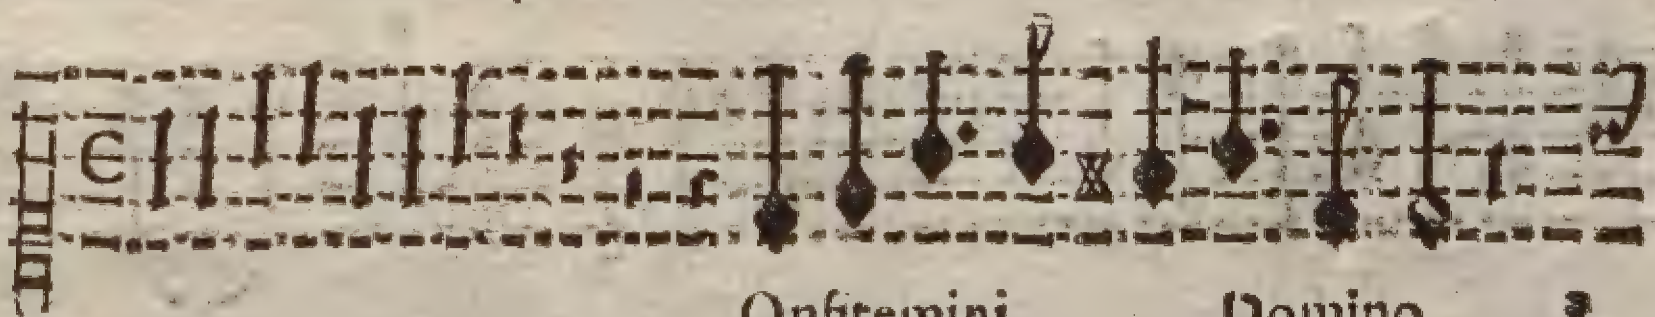 Onfitemini Domino